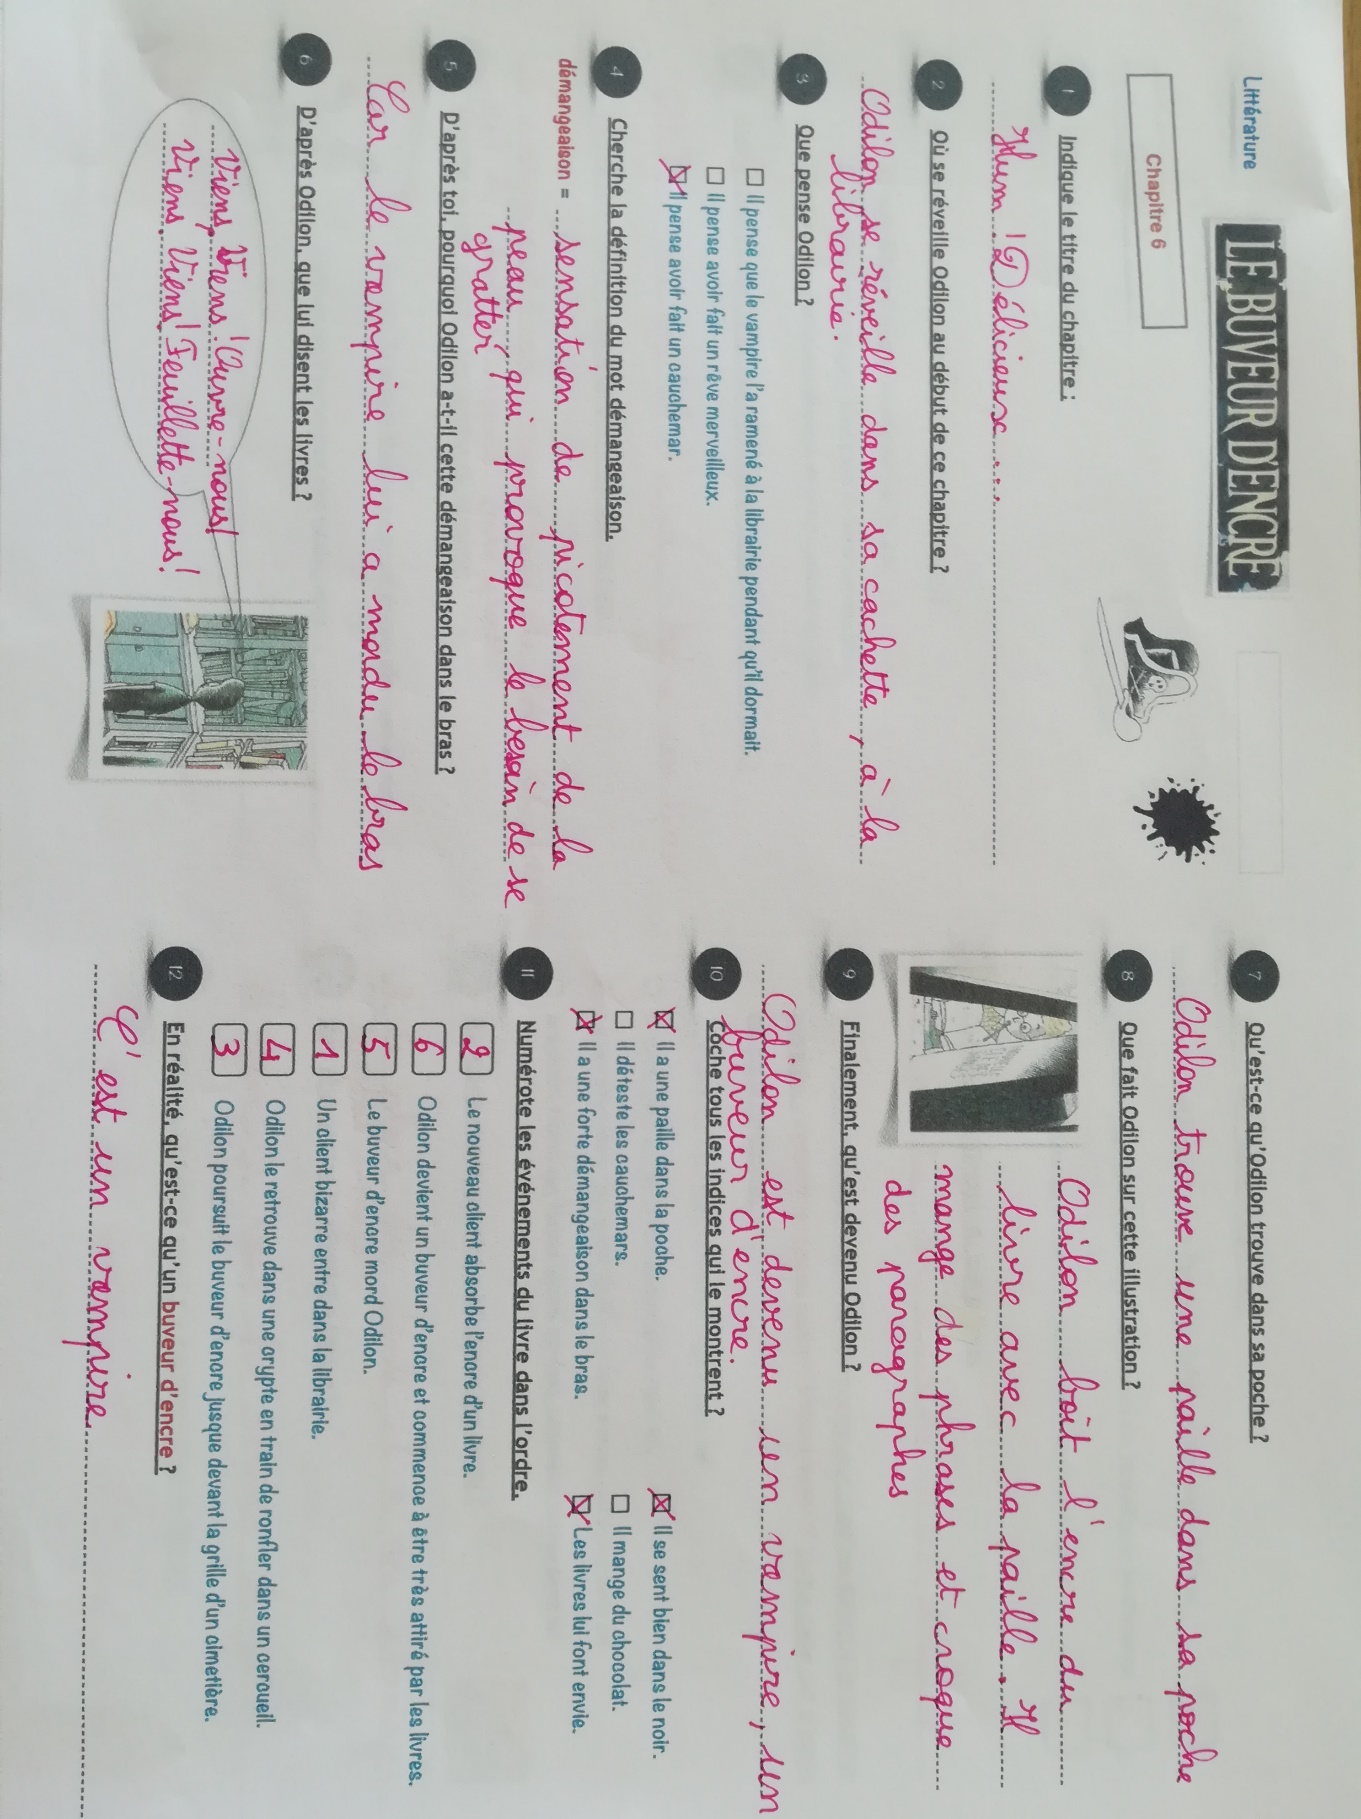 Littérature
LE BUVEUR D'ENCRE
Chapitre 6
1 Indique le titre du chapitre :
Hum ! Délicieux ...
2 Où se réveille Odilon au début de ce chapitre ?
Odilon se réveille dans sa cachette, à la
librairie.
3 Que pense Odilon ?
Il pense que le vampire l'a ramené à la librairie pendant qu'il dormait.
Il pense avoir fait un rêve merveilleux.
Il pense avoir fait un cauchemar.
4 Cherche la définition du mot démangeaison.
démangeaison = sensation de picotement de la
peau, qui provoque le besoin de se
gratter
5 D'après toi, pourquoi Odilon a-t-il cette démangeaison dans le bras ?
Car le vampire lui a mordu le bras
6 D'après Odilon, que lui disent les livres ?
Viens, Viens ! Ouvre-nous!
Viens, Viens! Feuillette-nous!
7 Qu'est-ce qu'Odilon trouve dans sa poche ?
Odilon trouve une paille dans sa poche
8 Que fait Odilon sur cette illustration ?
Odilon boit l'encre du
livre avec la paille. Il
mange des phrases et croque
des paragraphes
9 Finalement, qu'est devenu Odilon ?
Odilon est devenu un vampire, un
buveur d'encre.
10 Coche tous les indices qui le montrent ?
Il a une paille dans la poche. Il se sent bien dans le noir.
Il déteste les cauchemars. Il mange du chocolat.
Il a une forte démangeaison dans le bras. Les livres lui font envie.
11 Numérote les événements du livre dans l'ordre.
2 Le nouveau client absorbe l'encre d'un livre.
6 Odilon devient un buveur d'encre et commence à être très attiré par les livres.
5 Le buveur d'encre mord Odilon.
1 Un client bizarre entre dans la librairie.
4 Odilon le retrouve dans une crypte en train de ronfler dans un cercueil.
3 Odilon poursuit le buveur d'encre jusque devant la grille d'un cimetière.
12 En réalité, qu'est-ce qu'un buveur d'encre ?
C'est un vampire.